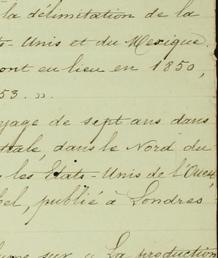 la délimitation de la
ts-Unis et du Mexique.
ont eu lieu en 1850,
53. ».
oyage de sept ans dans
trale, dans le Nord du
les États-Unis de l'Oues
bel, publié à Londres
sur « La production